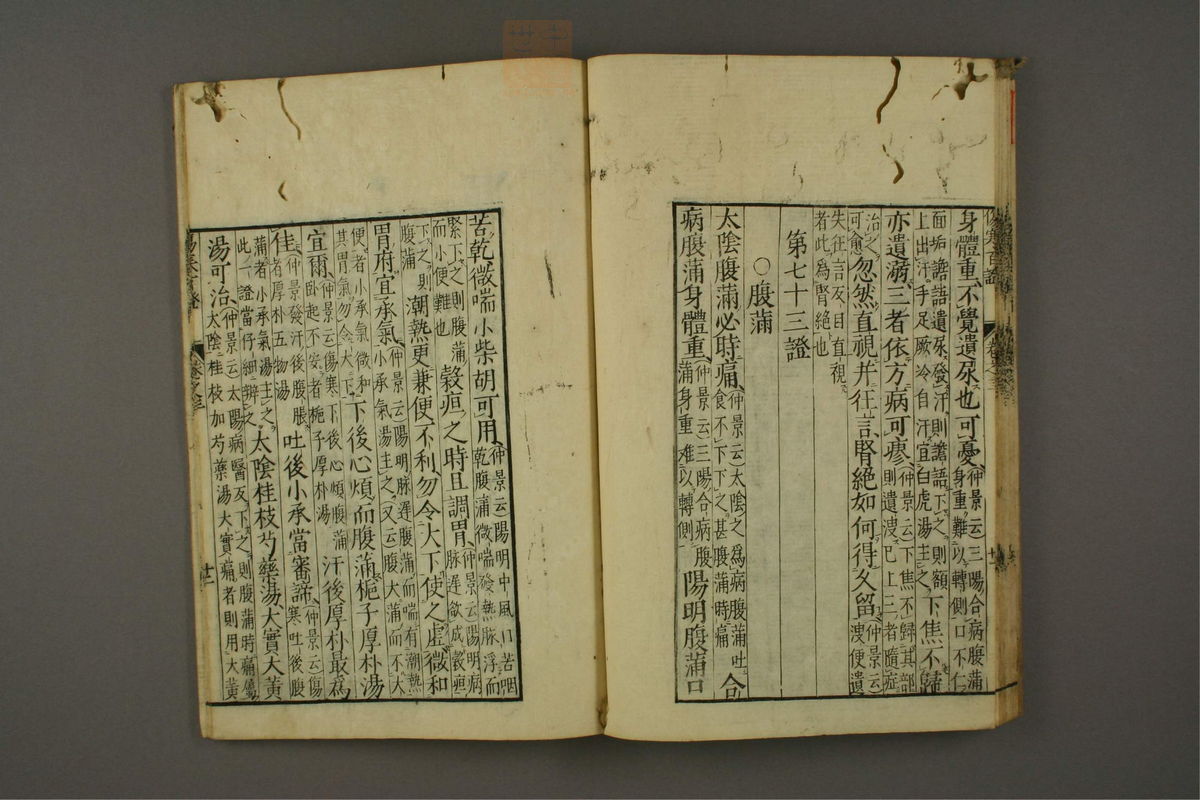 傷寒百證 卷之三
身體重不覺遺尿也可憂仲景云三陽合病腹滿身重難以轉側口不仁
面垢譫語遺尿發汗則譫語下之則額上出汗手足厥冷自汗宜白虎湯主之下焦不歸
亦遺溺三者依方病可瘳仲景云下焦不歸其部則遺溲已上三者隨症
治之可愈忽然直視并狂言腎絕如何得久留仲景云溲便遺
失狂言反目直視者此為腎絕也
第七十三證
〇腹滿
太陰腹滿必時痛仲景云太陰之為病腹滿吐食不下下之甚腹滿時痛合
病腹滿身體重仲景云三陽合病腹滿身重難以轉側陽明腹滿口
苦乾微喘小柴胡可用仲景云陽明中風口苦咽乾腹滿微喘發熱脉浮而
緊下之則腹滿而小便難也穀疸之時且調胃仲景云陽明病脉遲欲成穀疸
下之則腹滿潮熱更兼便不利勿令大下使之虛微和
胃府宜承氣仲景云陽明脉遲腹滿而喘有潮熱小承氣湯主之又云腹大滿而不大
便者小承氣微和其胃氣勿令大下下後心煩而腹滿梔子厚朴湯
宜爾仲景云傷寒下後心煩腹滿臥起不安者梔子厚朴湯汗後厚朴最為
佳仲景發汗後腹脹者厚朴五物湯吐後小承當審諦仲景云傷寒吐後腹
滿者小承氣湯主之此一證當仔細辨之太陰桂枝芍藥湯大實大黃
湯可治仲景云太陽病醫反下之則腹滿時痛屬太陰桂枝加芍藥湯大實痛者則用大黃